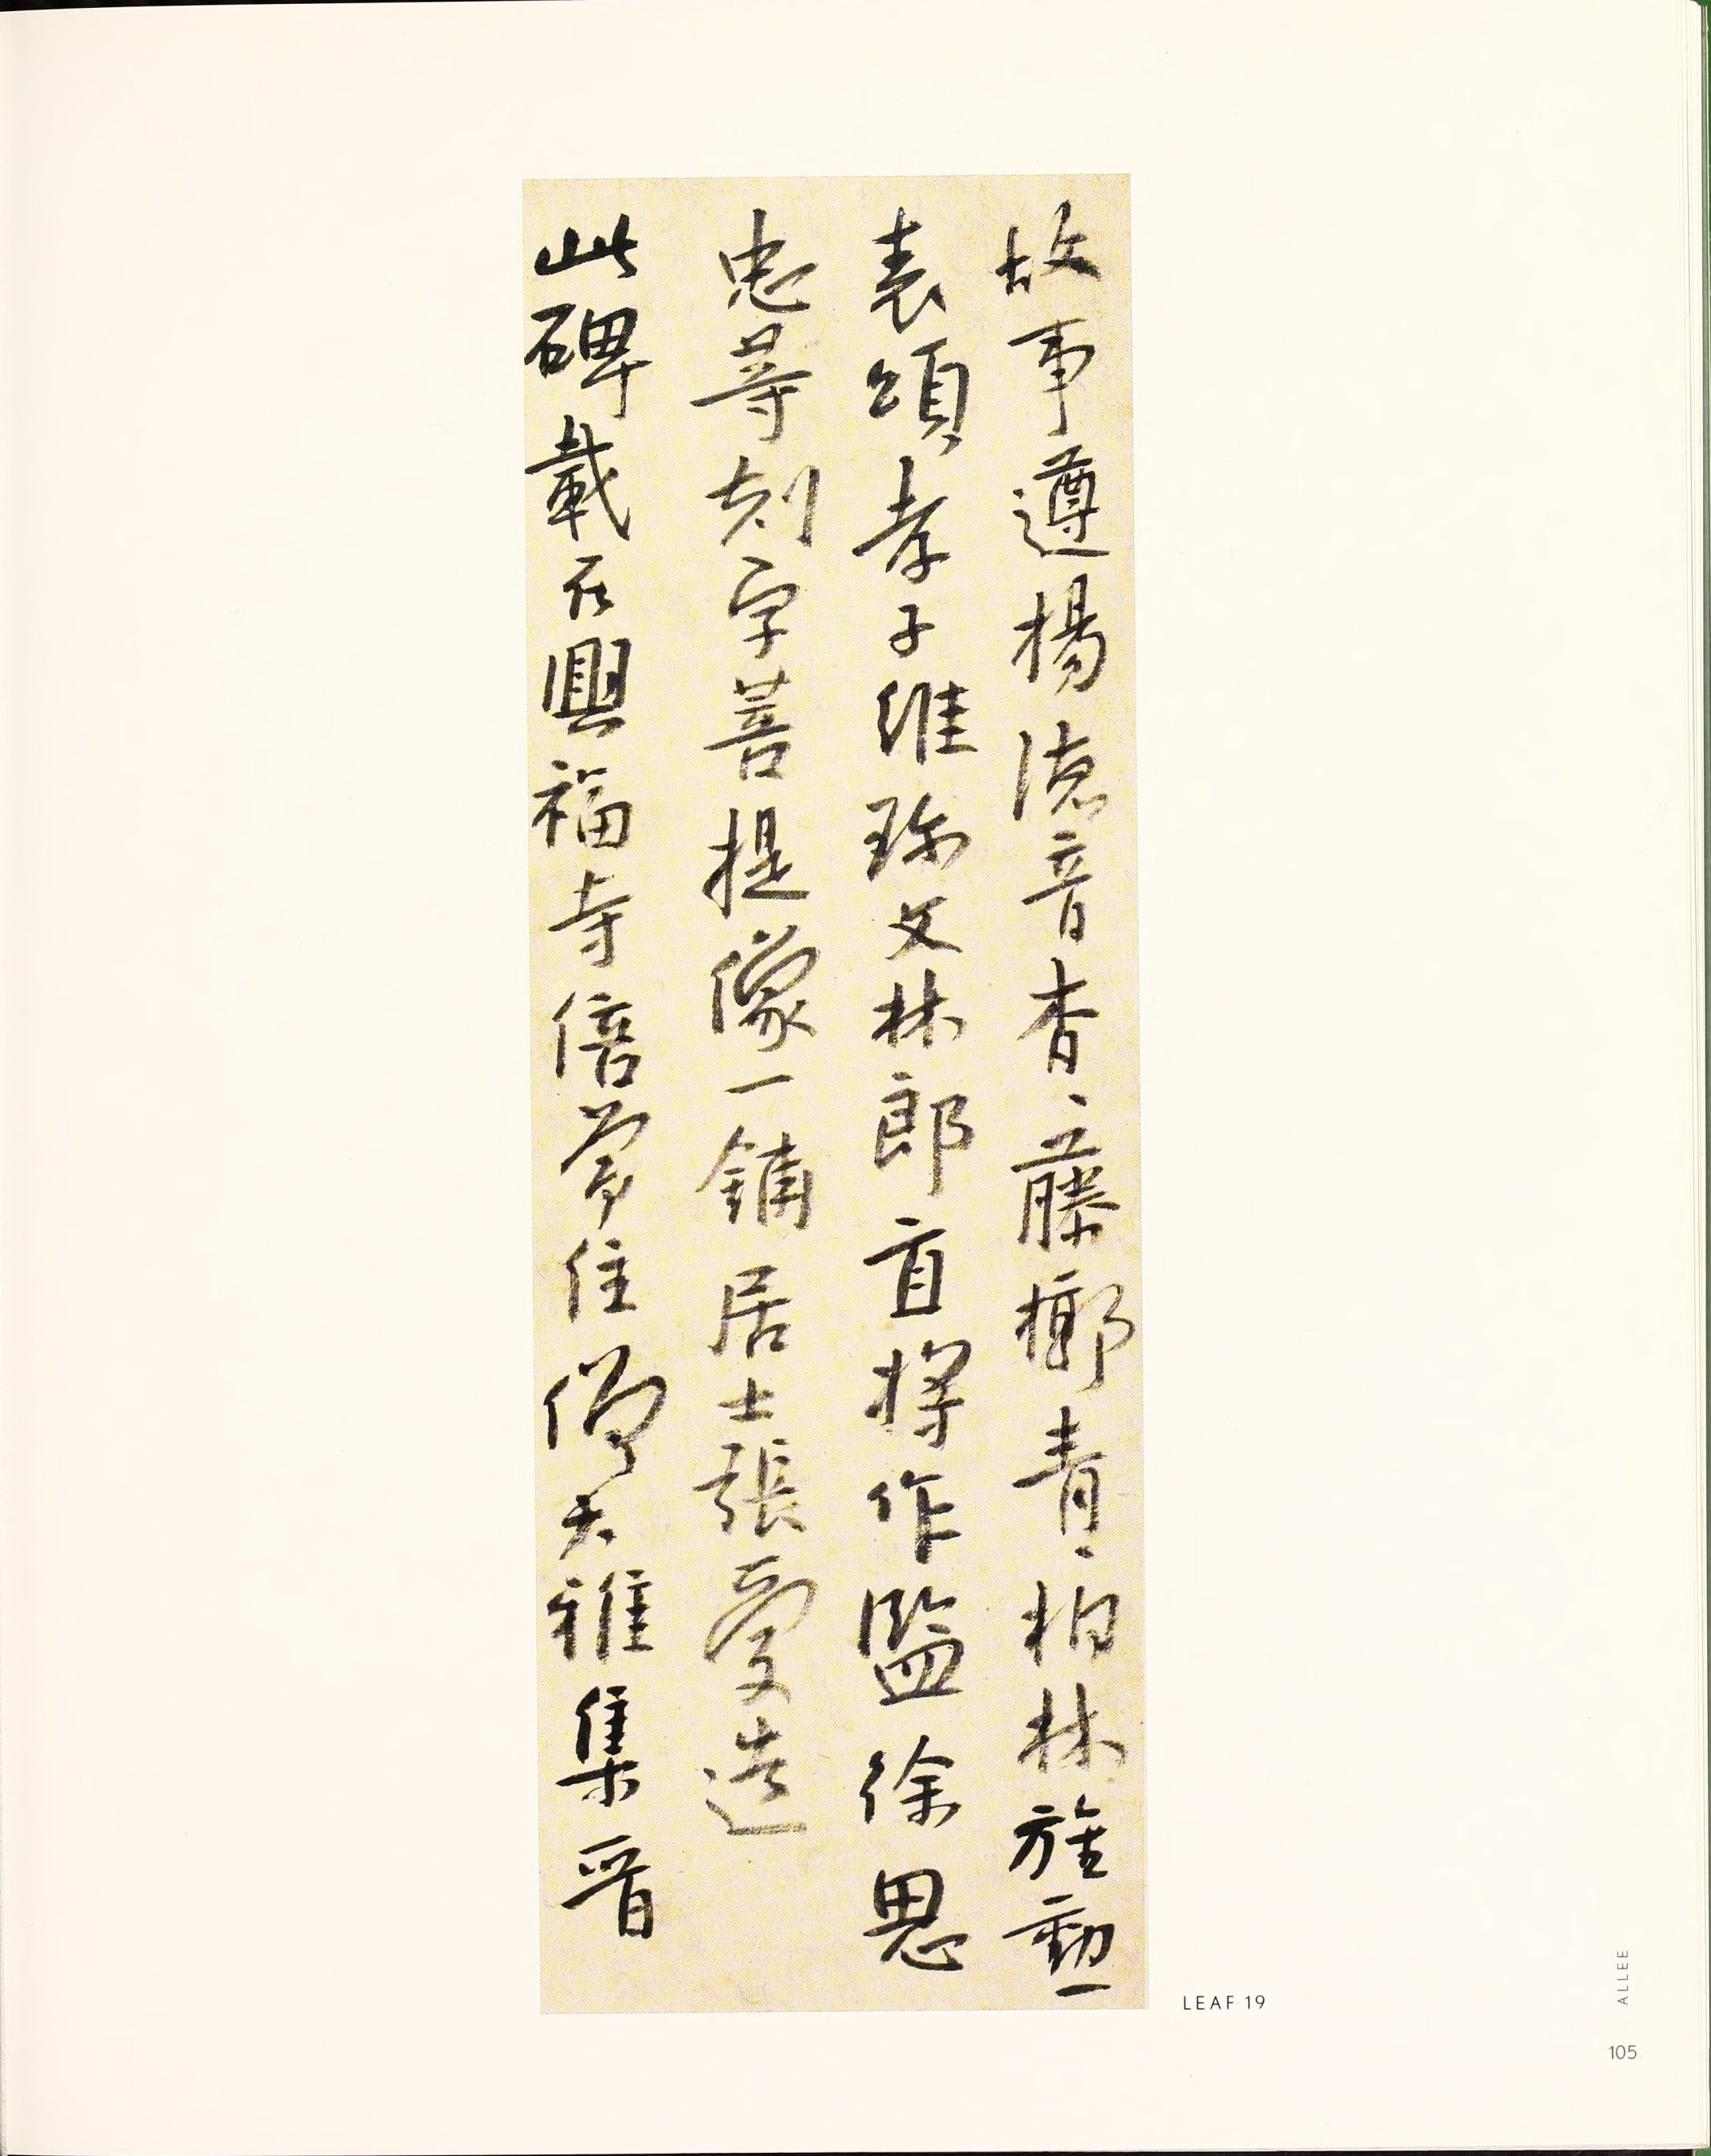 故事遵揚德音杳〻藤槨青〻柏林旌勳
表頌孝子維珎文林郎直將作監徐思
忠等刻字菩提像一鋪居士張愛造
此碑載在興福寺倍常住僧大雅集晉
LEAF 19
ALLEE
105